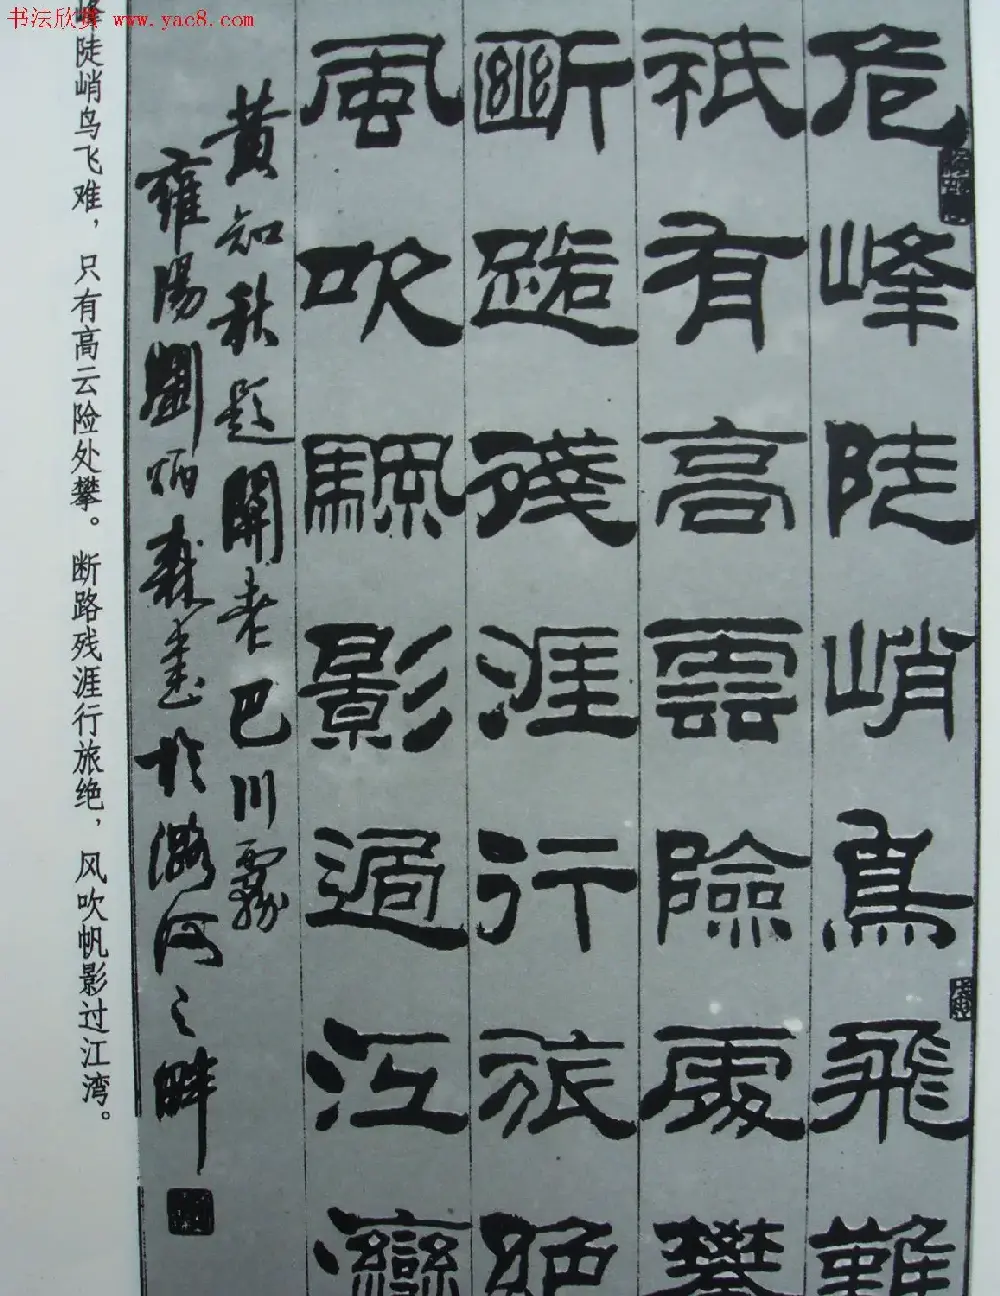 书法欣赏 www.yac8.com
危峰陡峭鳥飛難
祇有高雲險處攀
斷路殘涯行旅絕
風吹颿影過江灣
黃知秋題關老巴川霧
雍陽劉炳森書於潞河之畔
陡峭鸟飞难，只有高云险处攀。断路残涯行旅绝，风吹帆影过江湾。